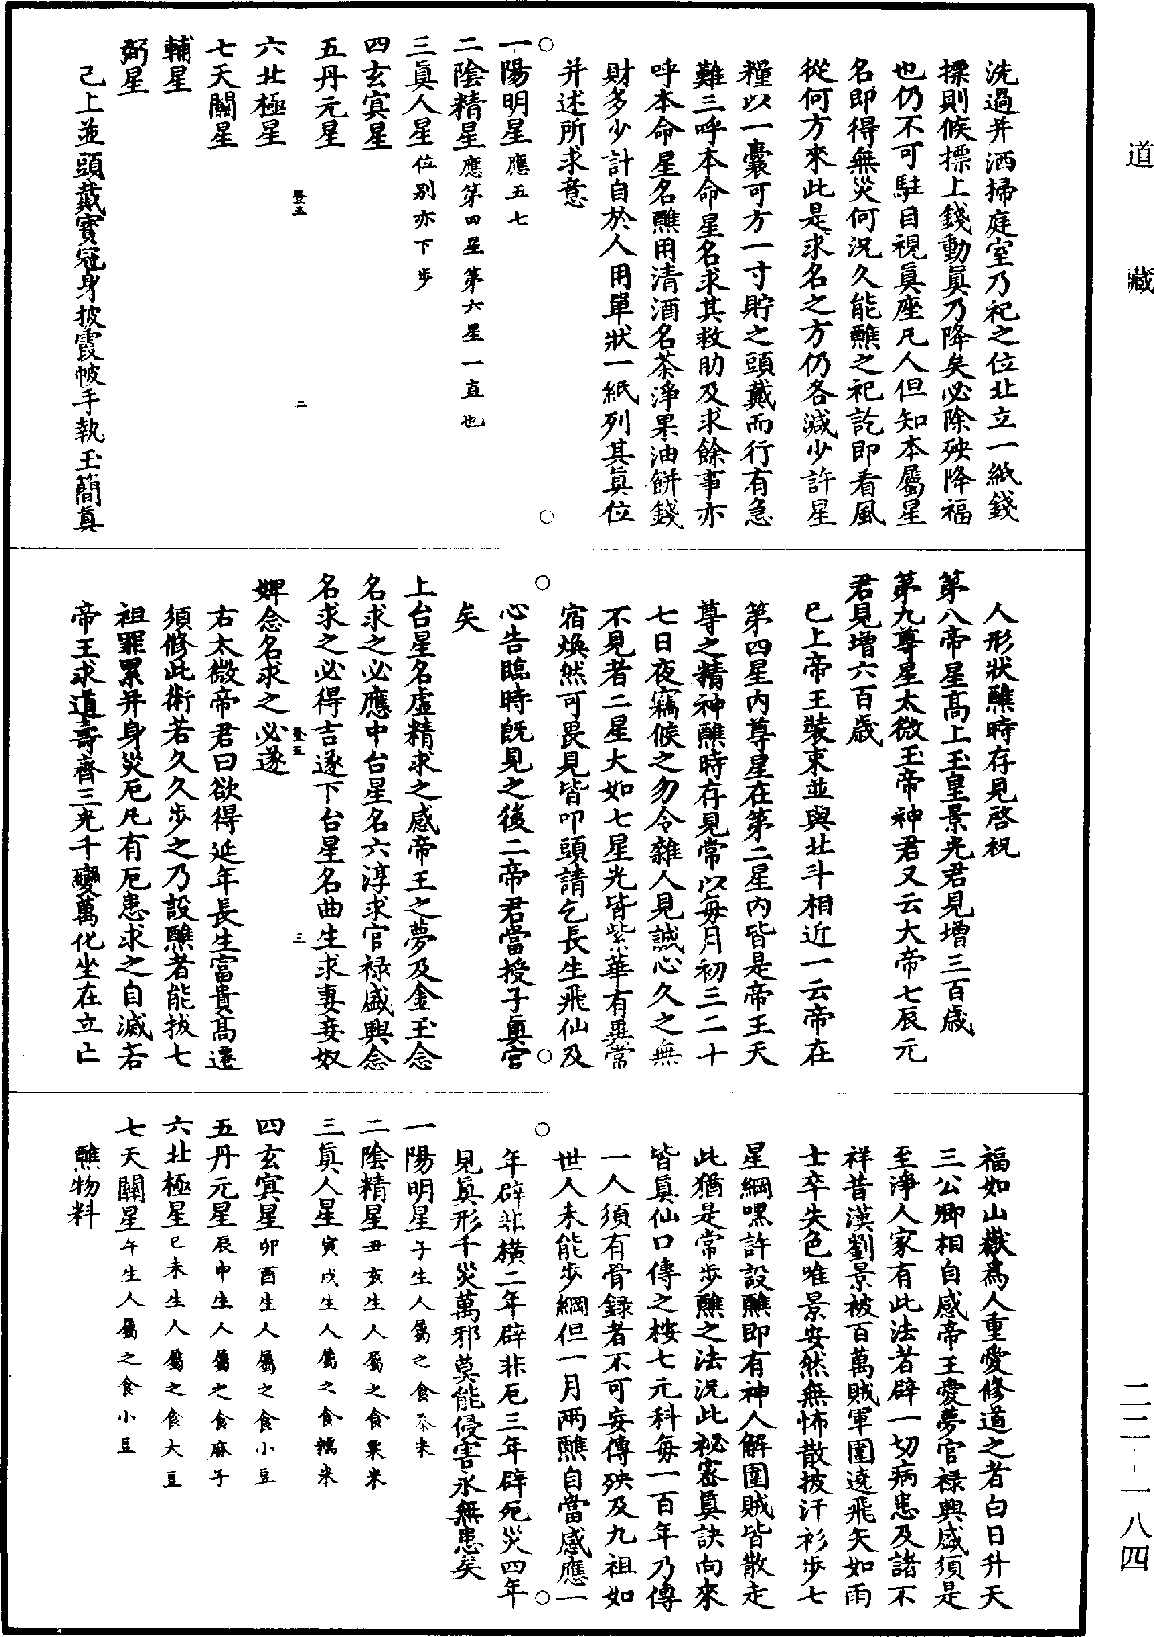 道藏
洗過并洒掃庭室乃祀之位北立一紙錢
摽則候摽上錢動眞乃降矣必除殃降福
也仍不可駐目視眞座凡人但知本屬星
名即得無災何況久能醮之祀訖即看風
從何方來此是求名之方仍各減少許星
糧以一囊可方一寸貯之頭戴而行有急
難三呼本命星名求其救助及求餘事亦
呼本命星名醮用清酒名茶淨果油餅錢
財多少計自於人用單狀一紙列其眞位
并述所求意
一陽明星應五七
二陰精星應第四星第六星一直也
三眞人星位別亦下步
四玄㝠星
五丹元星
二
六北極星
七天關星
輔星
弼星
已上並頭戴寶冠身披霞帔手執玉簡眞
人形狀醮時存見啓祝
第八帝星高上玉皇景光君見增三百歲
第九尊星太微玉帝神君又云大帝七辰元
君見增六百歲
已上帝王裝束並與北斗相近一云帝在
第四星內尊星在第二星內皆是帝王天
尊之精神醮時存見常以每月初三二十
七日夜竊候之勿令雜人見誠心久之無
不見者二星大如七星光皆紫華有異常
宿煥然可畏見皆叩頭請乞長生飛仙及
心告臨時旣見之後二帝君當授子眞官
矣
上台星名虛精求之感帝王之夢及金玉念
名求之必應中台星名六淳求官禄盛興念
名求之必得吉遂下台星名曲生求妻妾奴
三
婢念名求之必遂
右太微帝君曰欲得延年長生富貴高遷
須修此術若久久步之乃設醮者能拔七
祖罪累并身災厄凡有厄患求之自滅若
帝王求道壽齊三光千變萬化坐在立亡
福如山嶽爲人重愛修道之者白日升天
三公卿相自感帝王愛夢官禄興盛須是
至淨人家有此法者辟一切病患及諸不
祥昔漢劉景被百萬賊軍圍遶飛矢如雨
士卒失色唯景安然無怖散披汗衫步七
星綱嘿許設醮即有神人解圍賊皆散走
此猶是常步醮之法況此祕密眞訣向來
皆眞仙口傳之按七元科每一百年乃傳
一人須有骨録者不可妄傳殃及九祖如
世人未能步綱但一月兩醮自當感應一
年辟非橫二年辟非厄三年辟死災四年
見眞形千災萬邪莫能侵害永無患矣
一陽明星子生人屬之食黍米
二陰精星丑亥生人屬之食粟米
三眞人星寅戌生人屬之食糯米
四玄㝠星卯酉生人屬之食小豆
五丹元星辰申生人屬之食麻子
六北極星巳未生人屬之食大豆
七天關星午生人屬之食小豆
醮物料
二二-一八四